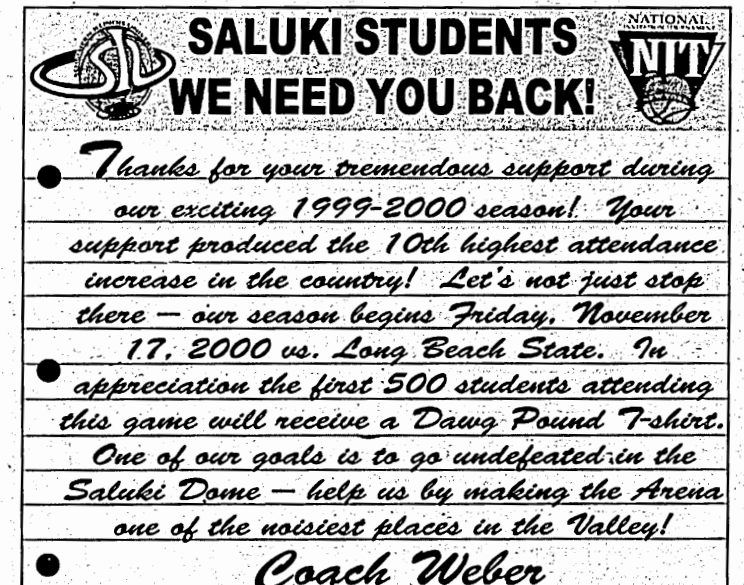 SALUKI STUDENTS
WE NEED YOU BACK!
NATIONAL
NIT
Thanks for your tremendous support during
our exciting 1999-2000 season! Your
support produced the 10th highest attendance
increase in the country! Let's not just stop
there — our season begins Friday, November
17, 2000 vs. Long Beach State. In
appreciation the first 500 students attending
this game will receive a Dawg Pound T-shirt.
One of our goals is to go undefeated in the
Saluki Dome — help us by making the Arena
one of the noisiest places in the Valley!
Coach Weber